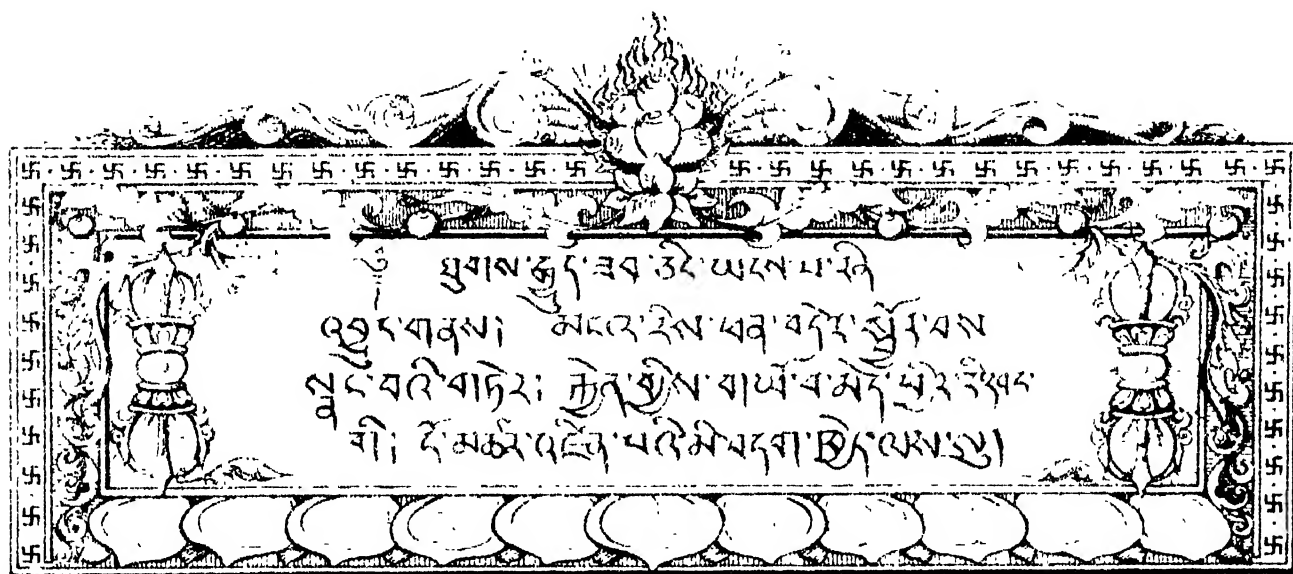 ཐུགས་རྒྱུད་ཟབ་ཅིང་ཡངས་པ་རིན
འབྱུང་གནས། མངའ་རིས་ཕན་བདེར་སྦྱོར་བས
སྣང་བའི་གཏེར། རྐྱེན་གྱིས་གཡོ་བ་མེད་པར་རི་དབང་
གི། ངོ་མཚར་འཛིན་པའི་མི་བདག་ཁྱེད་ལས་སུ།